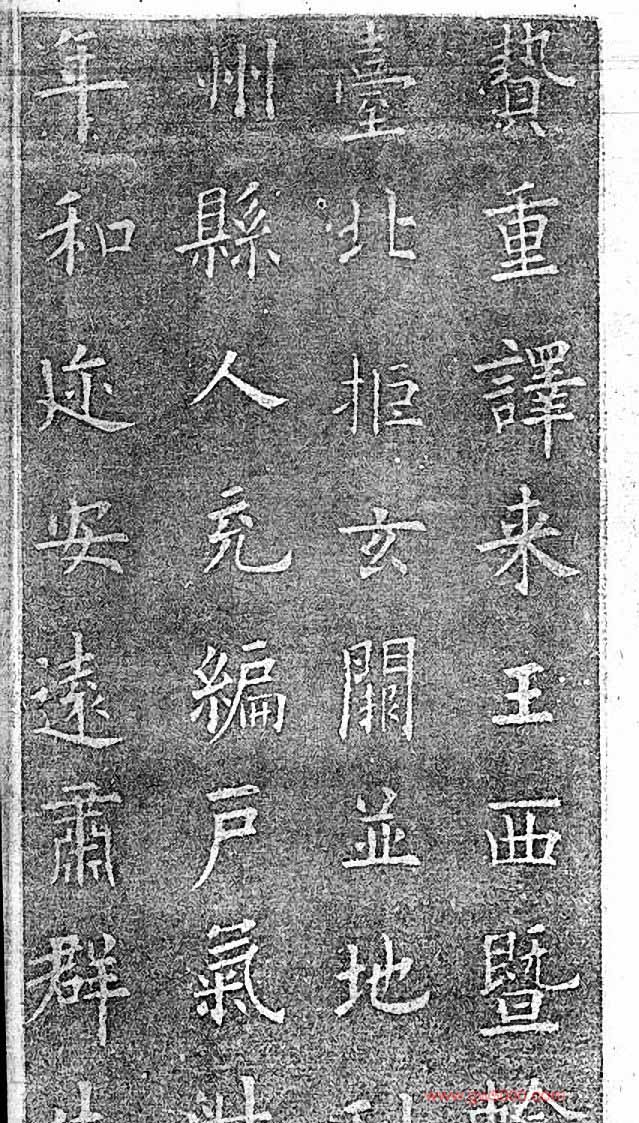 贄重譯来王西暨
臺北拒玄闕並地
州縣人充編戸氣
年和迩安遠肅群